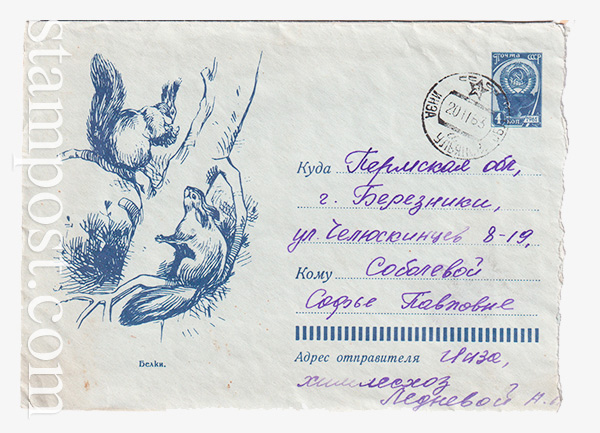 stampost.com
почта СССР
4 коп
20 11 63
ИНЗА
Куда Пермская обл,
г. Березники,
ул Челюскинцев 8-19,
Кому Соболевой
Софье Павловне
Адрес отправителя Инза,
химлесхоз
Ледневой Н.
Белки.